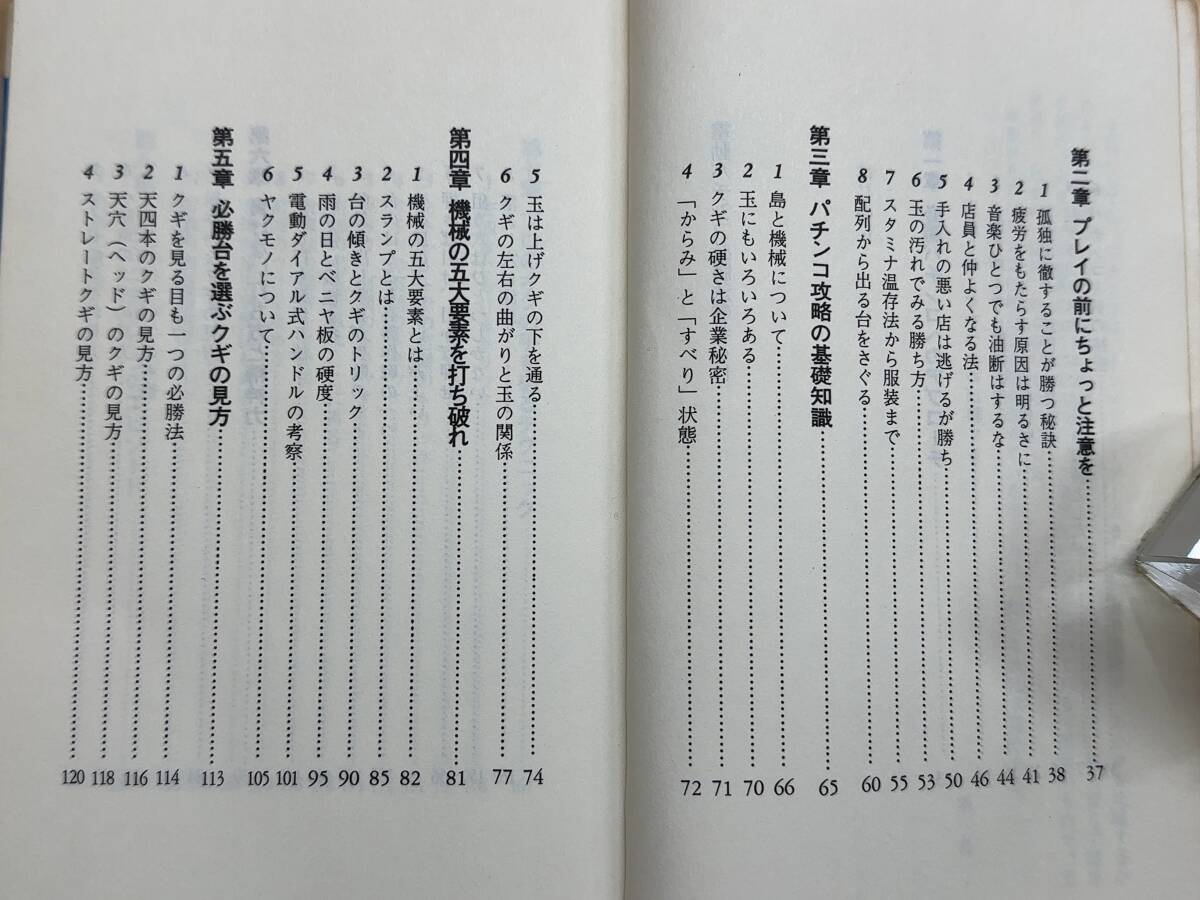 第二章 プレイの前にちょっと注意を……37
1 孤独に徹することが勝つ秘訣……38
2 疲労をもたらす原因は明るさに……41
3 音楽ひとつでも油断はするな……44
4 店員と仲よくなる法……46
5 手入れの悪い店は逃げるが勝ち……50
6 玉の汚れでみる勝ち方……53
7 スタミナ温存法から服装まで……55
8 配列から出る台をさぐる……60
第三章 パチンコ攻略の基礎知識……65
1 島と機械について……66
2 玉にもいろいろある……70
3 クギの硬さは企業秘密……71
4 「からみ」と「すべり」状態……72
5 玉は上げクギの下を通る……74
6 クギの左右の曲がりと玉の関係……77
第四章 機械の五大要素を打ち破れ……81
1 機械の五大要素とは……82
2 スランプとは……85
3 台の傾きとクギのトリック……90
4 雨の日とベニヤ板の硬度……95
5 電動ダイアル式ハンドルの考察……101
6 ヤクモノについて……105
第五章 必勝台を選ぶクギの見方……113
1 クギを見る目も一つの必勝法……114
2 天四本のクギの見方……116
3 天穴（ヘッド）のクギの見方……118
4 ストレートクギの見方……120